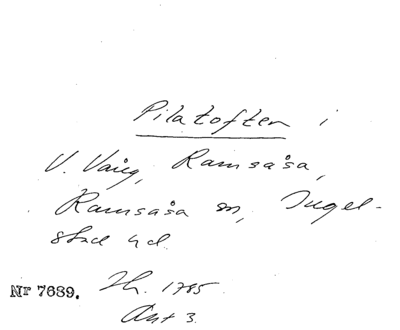 Pilatoften i
V. Vång, Ramsåsa,
Ramsåsa sn, Ingel-
stad hd.
Nr 7689. Zh. 1785
Akt 3.